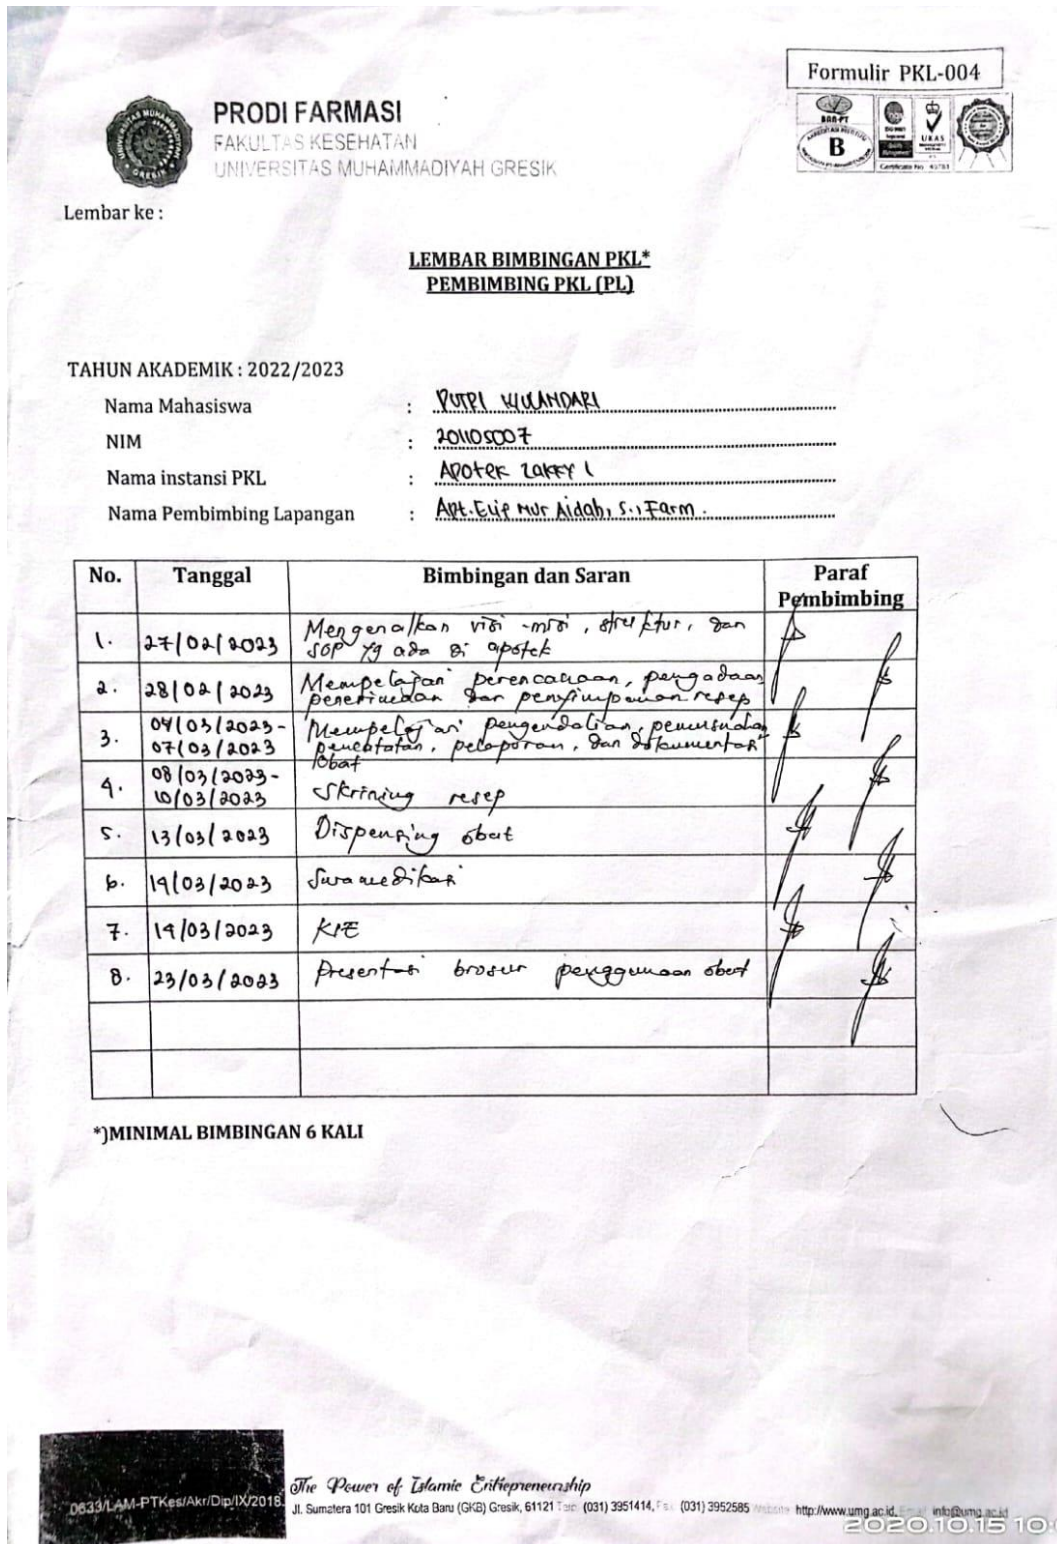 Formulir PKL-004
BAN-PT
B
UKAS
PRODI FARMASI
FAKULTAS KESEHATAN
UNIVERSITAS MUHAMMADIYAH GRESIK
Lembar ke :
LEMBAR BIMBINGAN PKL*
PEMBIMBING PKL (PL)
TAHUN AKADEMIK : 2022/2023
Nama Mahasiswa : PUTRI WULANDARI
NIM : 201105007
Nama instansi PKL : Apotek Zakky 1
Nama Pembimbing Lapangan : Apt. Elip Nur Aidah, S., Farm.
No. Tanggal Bimbingan dan Saran Paraf Pembimbing
1. 27/02/2023 Mengenalkan visi-misi, struktur, dan
SOP yg ada di apotek
2. 28/02/2023 Mempelajari perencanaan, pengadaan
penerimaan dan penyimpanan resep
3. 04/03/2023- Mempelajari pengendalian, pemusnahan
07/03/2023 pencatatan, pelaporan, dan dokumentasi
obat
4. 08/03/2023-
10/03/2023 Skrining resep
5. 13/03/2023 Dispensing obat
6. 14/03/2023 Swamedikasi
7. 14/03/2023 KIE
8. 23/03/2023 Presentasi brosur penggunaan obat
*)MINIMAL BIMBINGAN 6 KALI
0633/LAM-PTKes/Akr/Dip/IX/2018.
The Power of Islamic Entrepreneurship
Jl. Sumatera 101 Gresik Kota Baru (GKB) Gresik, 61121 (031) 3951414, (031) 3952585 Website http://www.umg.ac.id, info@umg.ac.id
2020.10.15 10: